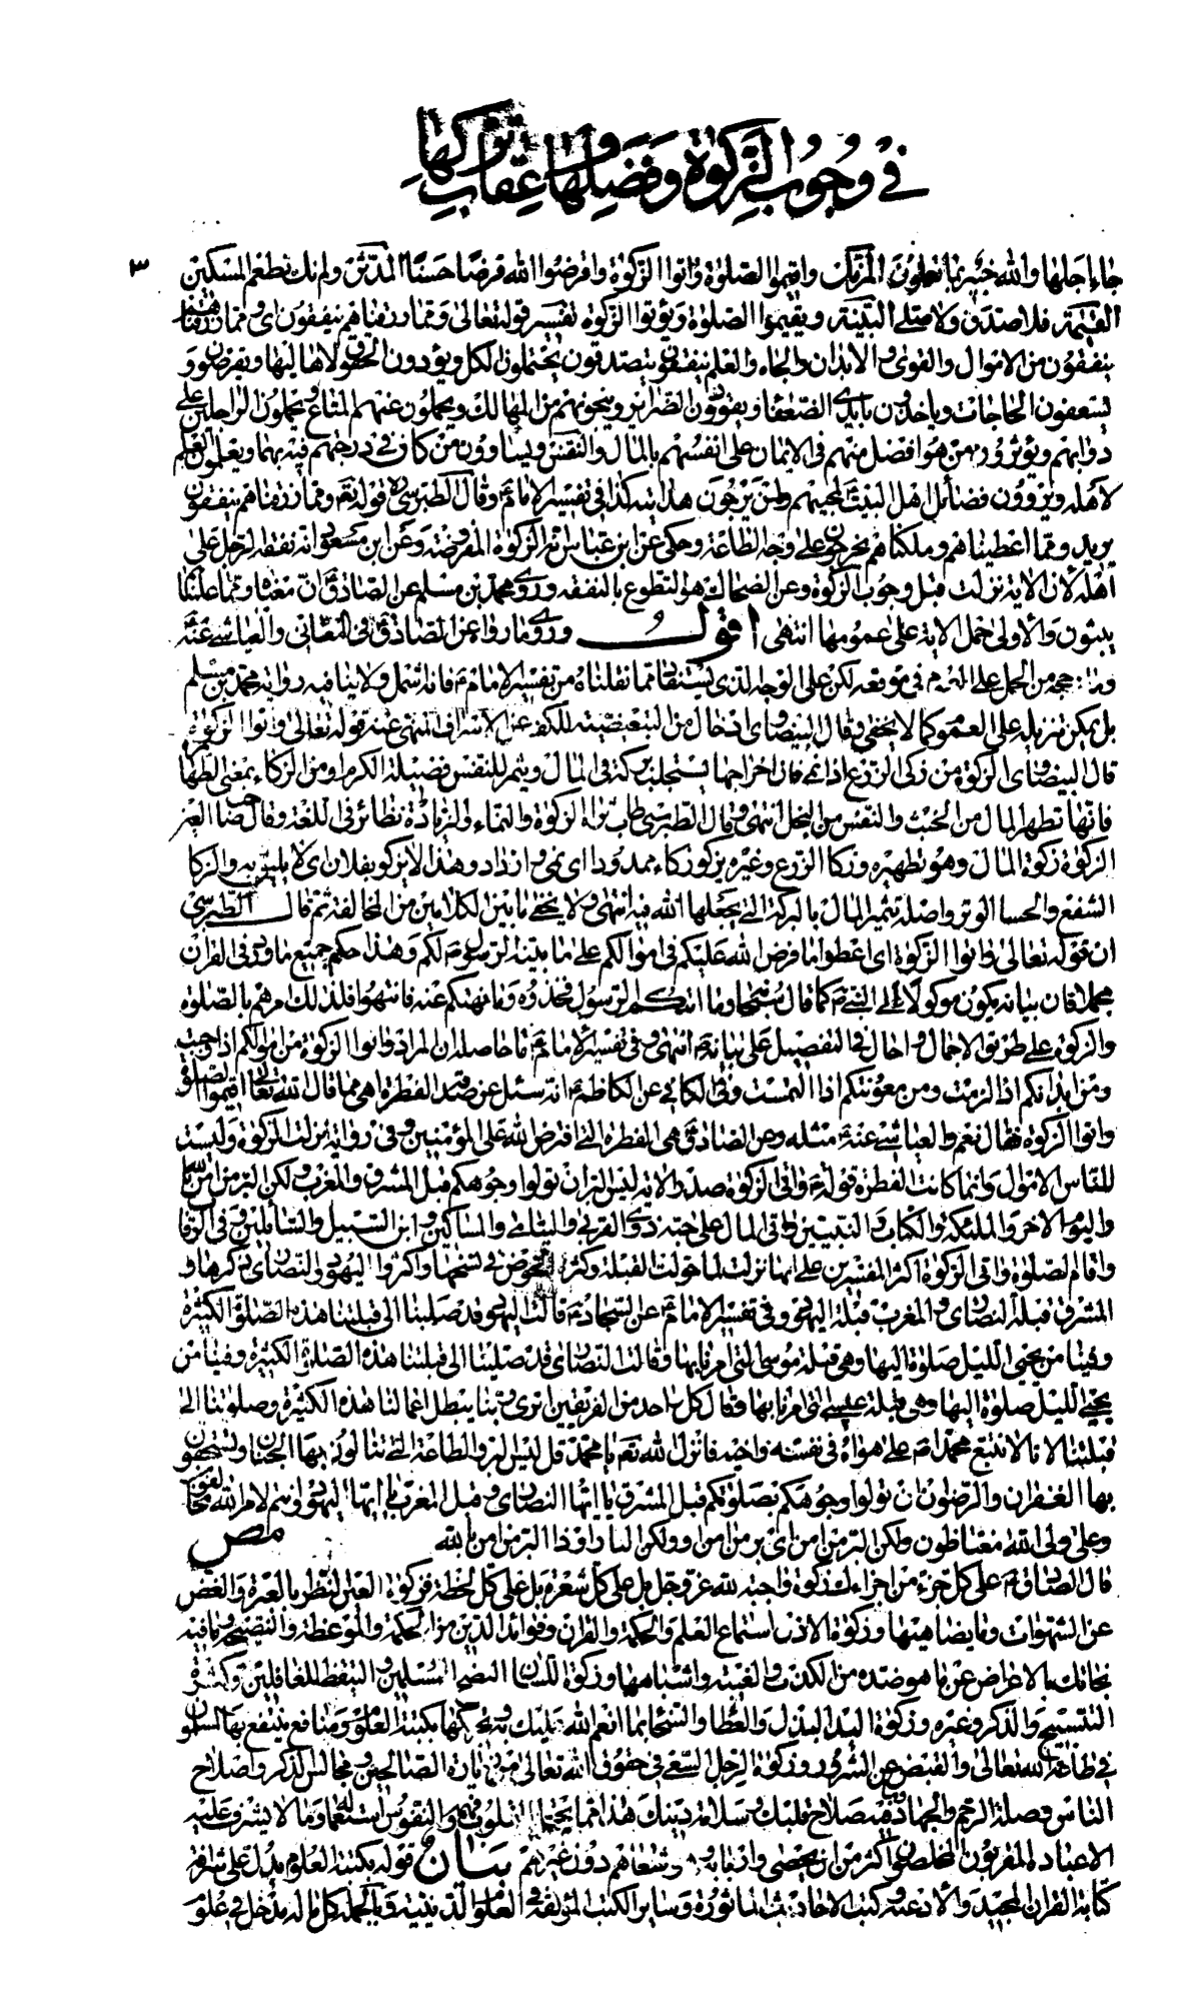 في وجوب الزكوة وفضلها وعقاب تركها
٣
جاء اجلها والله خبير بما تعملون المزمل واقيموا الصلوة واتوا الزكوة واقرضوا الله قرضا حسنا المدثر ولم نك نطعم المسكين
القيمة فلا صدق ولا صلى البينة ويقيموا الصلوة ويؤتوا الزكوة تفسير قوله تعالى ومما رزقناهم ينفقون اى ومما رزقناهم
ينفقون من الاموال والقوى والابدان والجاه والعلم يتصدقون يحتملون الكل ويؤدون الحقوق لاهاليها ويقرضون و
يسعفون الحاجات وياخذون بايدى الضعفاء ويقودون الضراير وينجونهم من المهالك ويحملون عنهم المتاع ويحملون الراجلين على
دوابهم ويؤثرون من هو افضل منهم في الايمان على انفسهم بالمال والنفس ويساوون من كان في درجتهم فيه بهما ويعلمون العلم
لاهله ويروون فضائل اهل البيت لمحبيهم ولمن يرجون هدايته كذا في تفسير الامام وقال الطبرسي قوله تعم ومما رزقناهم ينفقون
يريد ومما اعطيناهم وملكناهم يخرجون على وجه الطاعة وحكى عن ابن عباس انه الزكوة المفروضة وعن ابن مسعود انه نفقة الرجل على
اهله لان الاية نزلت قبل وجوب الزكوة وعن الضحاك هو التطوع بالنفقة وروى محمد بن مسلم عن الصادق ان معناه ومما علمناهم
يبثون والاولى حمل الاية على عمومها انتهى اقول وروى ما رواه عن الصادق في المعاني والعياشي عنه
من الحمل على العموم في موقعه لكن على الوجه الذي يستفاد مما نقلناه من تفسير الامام فانه اشمل ولا ينافيه رواية محمد بن مسلم
بل يمكن تنزيله على العموم كما لا يخفى وقال البيضاوى ادخال من التبعيضية للكف عن الاسراف المنهى عنه قوله تعالى واتوا الزكوة
قال البيضاوى الزكوة من زكى الزرع اذا نمى فان اخراجها يستجلب بركة في المال ويثمر للنفس فضيلة الكرم او من الزكاء بمعنى الطهارة
فانها تطهر المال من الخبث والنفس من البخل انتهى وقال الطبرسي طاب ثراه الزكوة والنماء والزيادة نظائر في اللغة وقال صاحب العين
الزكوة زكوة المال وهو تطهيره وزكا الزرع وغيره يزكو زكاء ممدودا اى نمى وازداد وهذا لا يزكو بفلان اى لا يليق به والزكا
الشفع والخسا الوتر واصله تثمير المال بالبركة التي يجعلها الله فيه انتهى ولا يخفى ما بين الكلامين من المخالفة ثم قال الطبرسي
ان قوله تعالى واتوا الزكوة اى اعطوا ما فرض الله عليكم في اموالكم على ما بينه الرسول لكم وهذا حكم جميع ما ورد في القران
مجملا فان بيانه يكون موكولا الى النبي كما قال سبحانه وما اتيكم الرسول فخذوه وما نهيكم عنه فانتهوا فلذلك امرهم بالصلوة
والزكوة على طريق الاجمال واحال في التفصيل على بيانه انتهى وفي تفسير الامام ما حاصله ان المراد واتوا الزكوة من اموالكم اذا وجبت
ومن ابدانكم اذا لزمت ومن معونتكم اذا التمست وفي الكافي عن الكاظم انه سئل عن صدقة الفطرة اهى مما قال الله تعالى اقيموا الصلوة
واتوا الزكوة فقال نعم والعياشي عنه مثله وعن الصادق هي الفطرة التي افترض الله على المؤمنين وفي رواية نزلت الزكوة وليست
للناس الاموال وانما كانت الفطرة قوله واتى الزكوة صدر الاية ليس البر ان تولوا وجوهكم قبل المشرق والمغرب ولكن البر من امن بالله
واليوم الاخر والملئكة والكتاب والنبيين واتى المال على حبه ذوى القربى واليتامى والمساكين وابن السبيل والسائلين وفي الرقاب
واقام الصلوة واتى الزكوة اكثر المفسرين على انها نزلت لما حولت القبلة وكثر الخوض في نسخها واكثروا اليهود والنصارى ذكرها و
المشرق قبلة النصارى والمغرب قبلة اليهود وفي تفسير الامام عن السجاد قالت اليهود قد صلينا الى قبلتنا هذه الصلوة الكثيرة
وفينا من يحيى الليل صلوة اليها وهي قبلة موسى التي امرنا بها وقالت النصارى قد صلينا الى قبلتنا هذه الصلوة الكثيرة وفينا من
يحيى الليل صلوة اليها وهي قبلة عيسى التي امرنا بها وقال كل واحد من الفريقين اترى ربنا يبطل اعمالنا هذه الكثيرة وصلوتنا الى
قبلتنا لانا لا نتبع محمدا على هواه في نفسه واخيه فانزل الله تعم يا محمد قل ليس البر والطاعة التي تنالون بها الجنان وتستحقون
بها الغفران والرضوان ان تولوا وجوهكم بصلوتكم قبل المشرق يا ايها النصارى وقبل المغرب يا ايها اليهود وانتم لامر الله مخالفون
وعلى ولى الله مغتاظون ولكن البر من امن اى بر من امن او ولكن البار او ذا البر من امن بالله مص
قال الصادق على كل جزء من اجزاءك زكوة واجبة لله عز وجل بل على كل شعرة بل على كل لحظة فزكوة العين النظر بالعبرة والغض
عن الشهوات وما يضاهيها وزكوة الاذن استماع العلم والحكمة والقران وفوائد الدين من الحكمة والموعظة والنصيحة وما فيه
نجاتك بالاعراض عن ما هو ضده من الكذب والغيبة واشباهها وزكوة اللسان النصح للمسلمين والتيقظ للغافلين وكثرة
التسبيح والذكر وغيره وزكوة اليد البذل والعطاء والسخاء بما انعم الله عليك به وتحريكها بكتبة العلوم ومنافع ينتفع بها المسلمون
في طاعة الله تعالى والقبض عن الشرور وزكوة الرجل السعى في حقوق الله تعالى من زيارة الصالحين ومجالس الذكر واصلاح
الناس وصلة الرحم والجهاد وما فيه صلاح قلبك وسلامة دينك هذا مما يحتمل القلوب فهمه والنفوس استعماله وما لا يشرف عليه
الا عباده المقربون المخلصون اكثر من ان يحصى وهم اربابه وهو شعارهم دون غيرهم بيان قوله بكتبة العلوم يدل على شرافة
كتابة القران المجيد والادعية وكتب الاحاديث الماثورة وساير الكتب المؤلفة في العلوم الدينية وبالجملة كل ما له مدخل في علوم